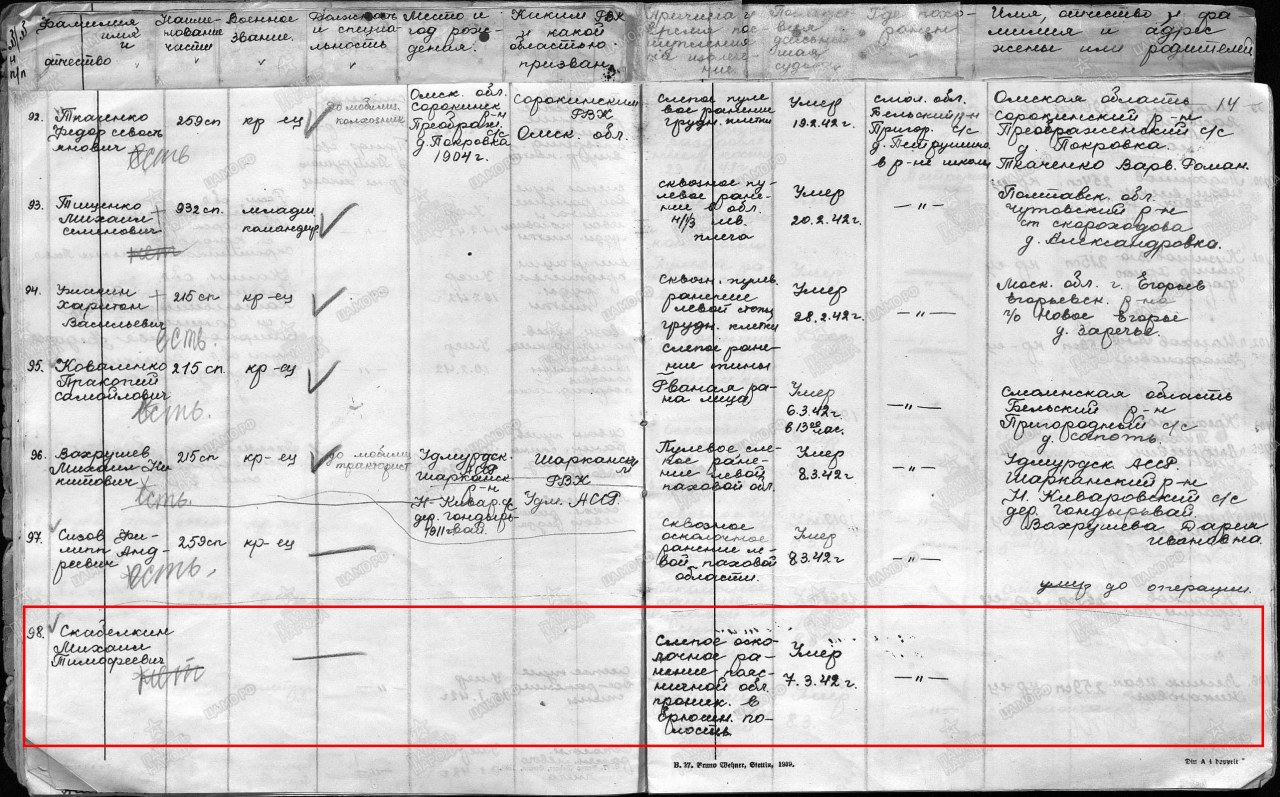 №№ п/п
Фамилия имя и отчество
Наименование части
Военное звание.
Должность и специальность
Место и год рождения.
Каким РВК и какой областью призван.
Причина и время поступления на излечение
Где похоронен
Имя, отчество и фамилия и адрес жены или родителей
14
92. Ткаченко Федор Севастьянович
есть
259сп
кр-ец
до мобилиз. колхозник
Омск. обл.
Сорокинск р-н
Преображ. с/с
д. Покровка
1904 г.
Сорокинский
РВК
Омск. обл.
слепое пулевое ранение грудн. клетки
Умер
19.2.42 г.
Смол. обл.
Бельский р-н
Пригор. с/с
д. Петрушино
в р-не школы
Омская область
Сорокинский р-н
Преображенский с/с
д. Покровка
Ткаченко Варв. Роман.
93. Тищенко
Михаил
Семенович
нет
932 сп.
младш.
командир
сквозное пулевое ранение в обл. н/3 лев. плеча
Умер
20.2.42 г.
— " —
Полтавск. обл.
Чутовский р-н
ст Скороходова
д. Александровка.
94.
Харитон
Васильевич
есть.
215 сп
кр-ец
сквозн. пулев.
ранение
левой стор.
грудн. клетки
слепое ранение
Умер
28.2.42 г.
— " —
Моск. обл. г. Егорьев
Егорьевск. р-на
п/о Новое Егорье
д. Заречье.
95. Коваленко
Пракопий
Самойлович
есть.
215 сп.
кр-ец
Рваная рана лица
Умер
6.3.42 г.
в 13⁰⁰ час.
— " —
Смоленская область
Бельский р-н
Пригородный с/с
д. Сапоть.
96. Вахрушев
Михаил Никитович
есть
215 сп
кр-ец
до мобилиз
тракторист
Удмурдск.
АССР
Шарканск
р-н
Н-Кивар. с
дер. Гондырь-
вай.
1911 г
Шарканск
РВК
Удм. АССР.
Пулевое слепое ранение левой паховой обл.
Умер
8.3.42 г
— " —
Удмурдск АССР.
Шарканский р-н
Н. Киваровский с/с
дер. Гондырьвай
Вахрушева Дарья
Ивановна.
97. Сизов Филипп Андреевич
есть.
259сп
кр-ец
сквозное
осколочное
ранение левой паховой
области.
Умер
8.3.42 г
— " —
умер до операции.
98. Скабелкин
Михаил
Тимофеевич
нет
Слепое осколочное ранение поясничной обл.
проник. в
брюшн. полость
Умер
7.3.42 г.
— " —
B. 37. Bruno Wehner, Stettin, 1939.
Din A 4 doppelt